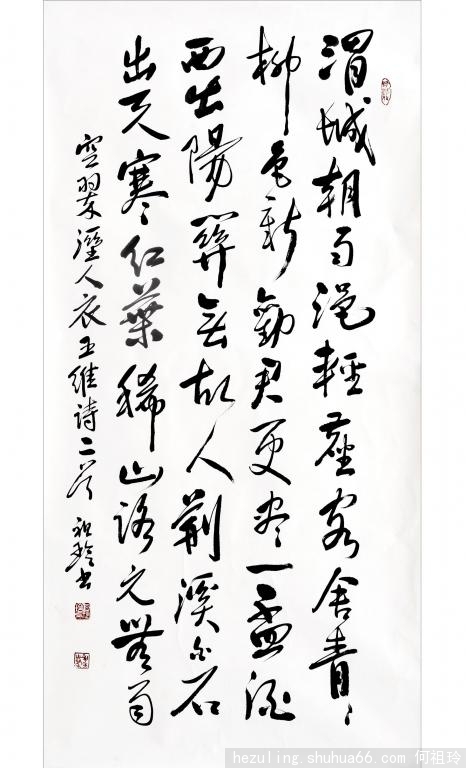 渭城朝雨浥輕塵客舍青々
柳色新勸君更尽一盃酒
西出陽關無故人荊溪白石
出天寒紅葉稀山路元無雨
空翠溼人衣王維诗二首 祖玲书
hezuling.shuhua66.com 何祖玲